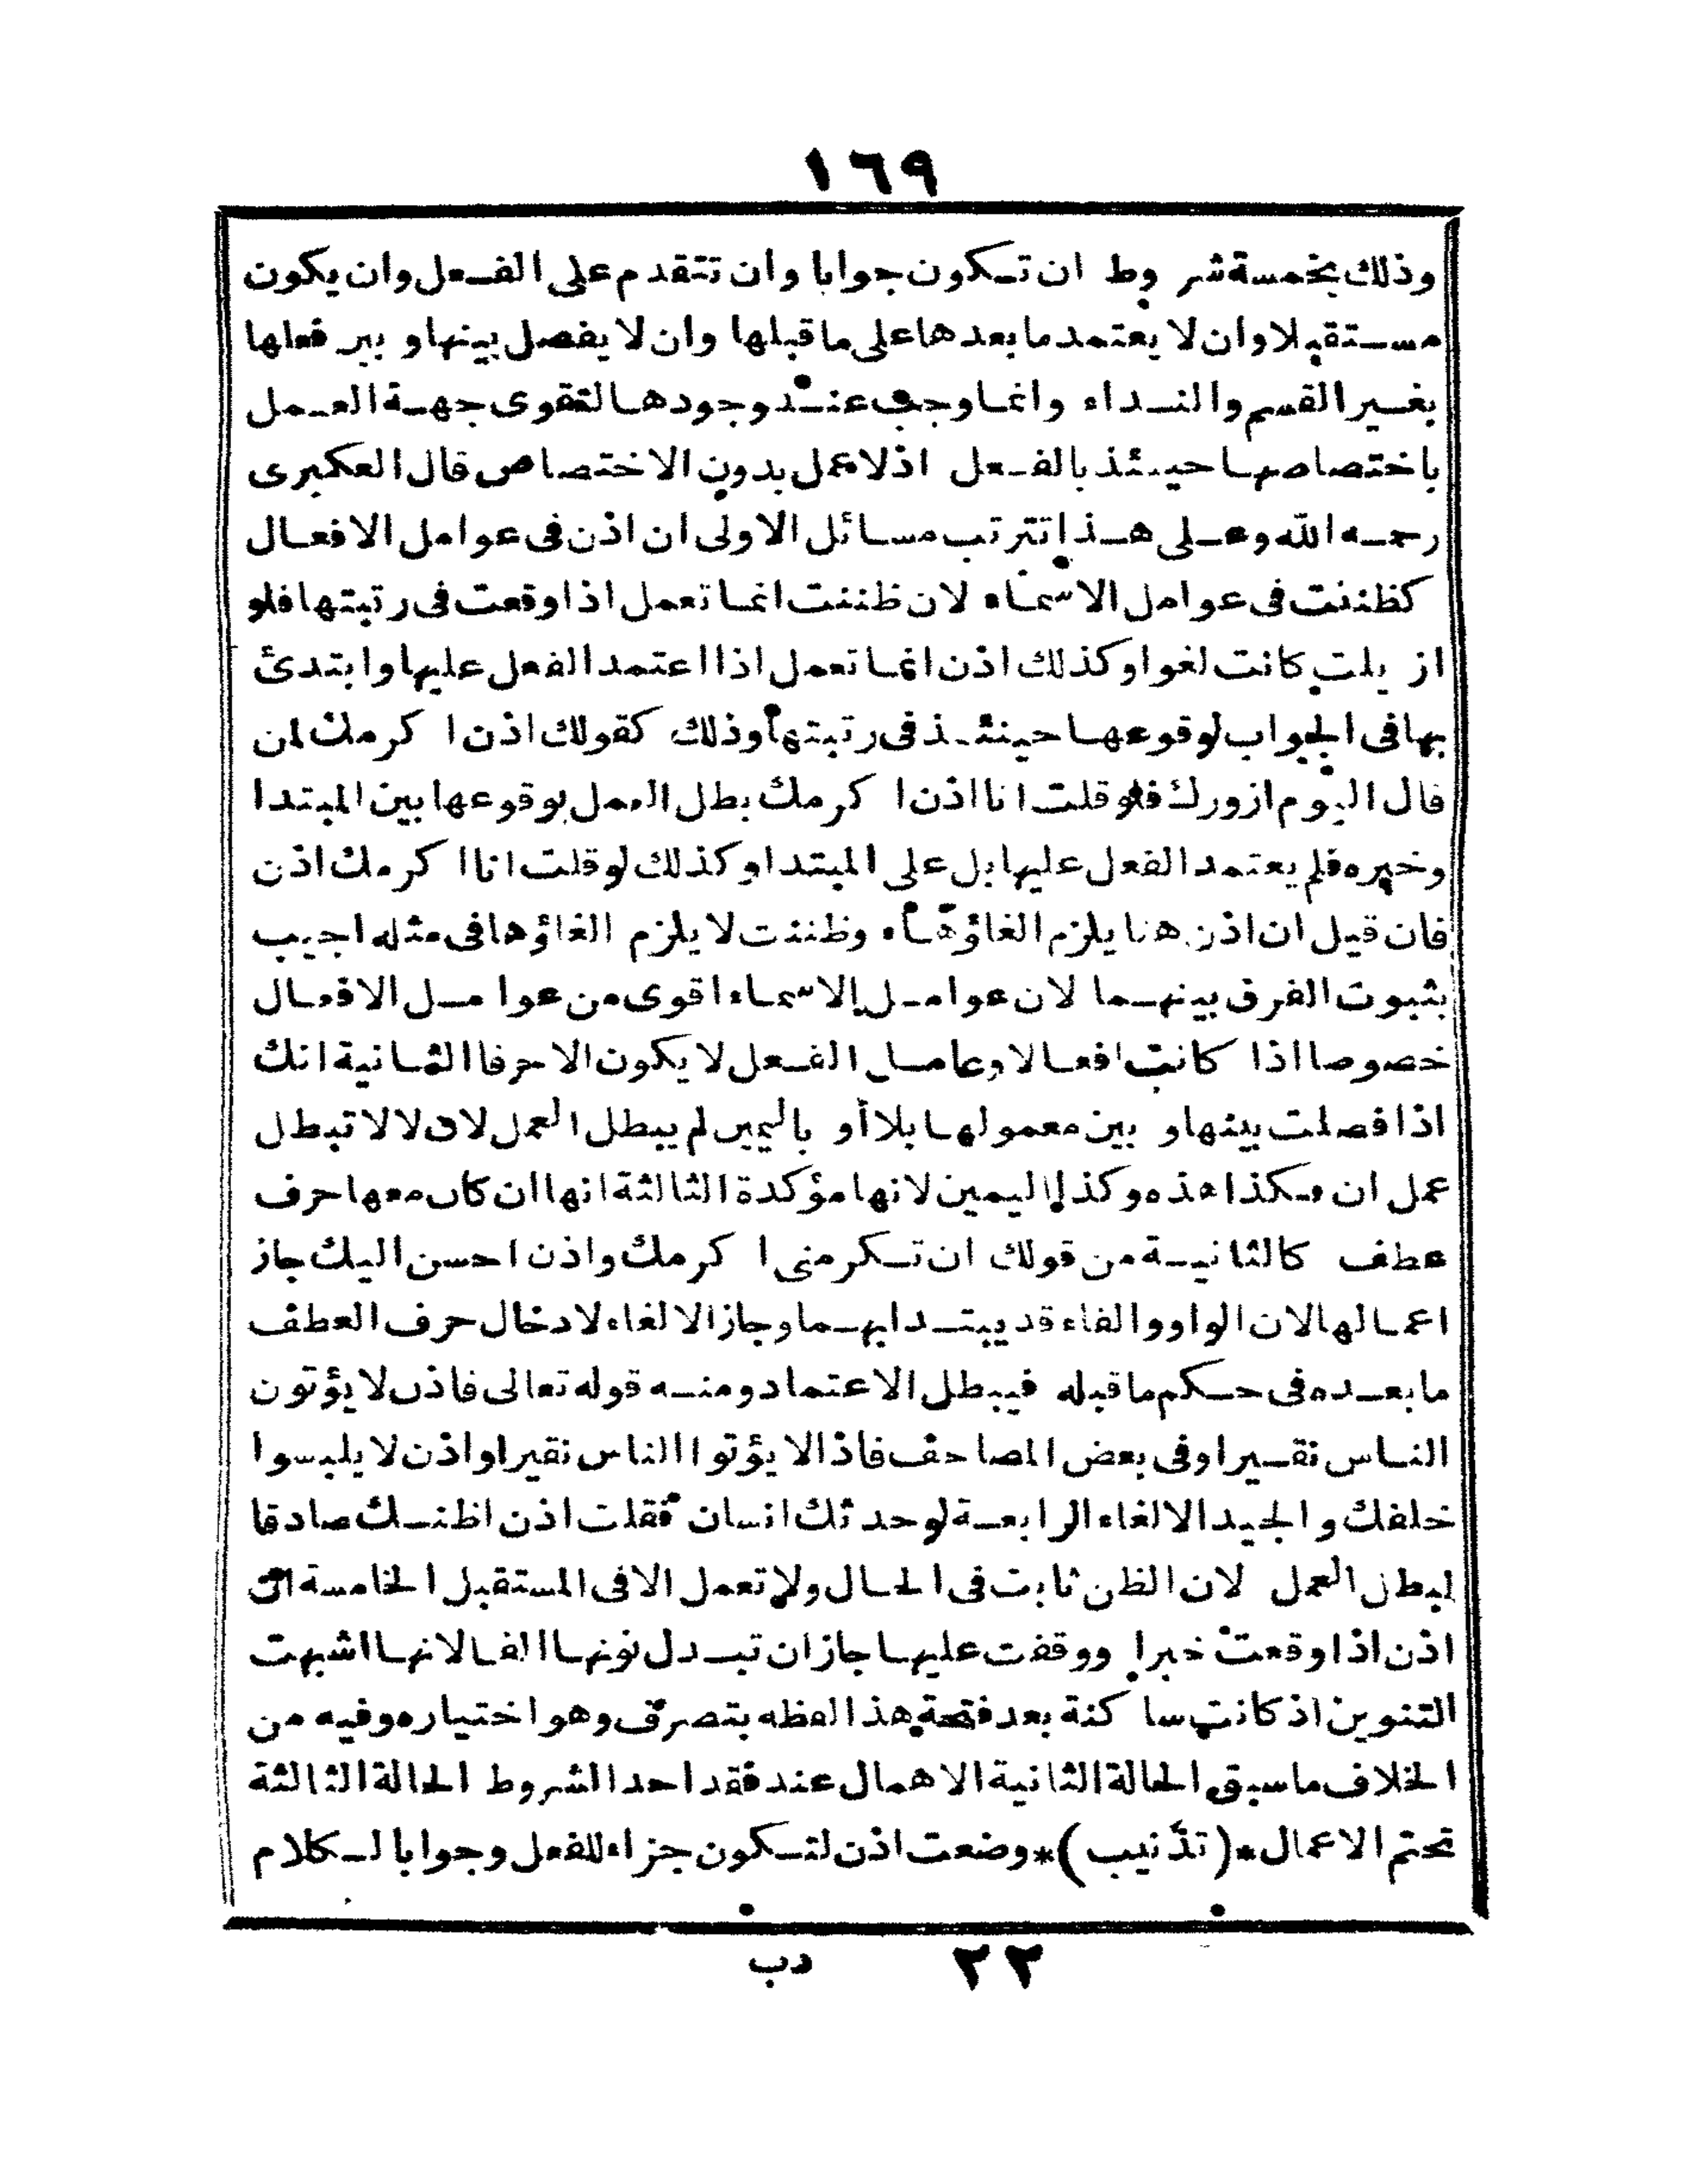 ١٦٩
وذلك بخمسة شروط ان تكون جوابا وان تتقدم على الفعل وان يكون
مستقبلا وان لا يعتمد ما بعدها على ما قبلها وان لا يفصل بينها وبين فعلها
بغير القسم والنداء وانما وجب عند وجودها لتقوى جهة العمل
باختصاصها حينئذ بالفعل اذ لا عمل بدون الاختصاص قال العكبرى
رحمه الله وعلى هذا تترتب مسائل الاولى ان اذن فى عوامل الافعال
كظننت فى عوامل الاسماء لان ظننت انما تعمل اذا وقعت فى رتبتها فلو
ازيلت كانت لغوا وكذلك اذن انما تعمل اذا اعتمد الفعل عليها وابتدئ
بها فى الجواب لوقوعها حينئذ فى رتبتها وذلك كقولك اذن اكرمك لمن
قال اليوم ازورك فلو قلت انا اذن اكرمك بطل العمل لوقوعها بين المبتدا
وخبره فلم يعتمد الفعل عليها بل على المبتدا وكذلك لو قلت انا اكرمك اذن
فان قيل ان اذن هنا يلزم الغاؤها وظننت لا يلزم الغاؤها فى مثله اجيب
بثبوت الفرق بينهما لان عوامل الاسماء اقوى من عوامل الافعال
خصوصا اذا كانت افعالا وعامل الفعل لا يكون الا حرفا الثانية انك
اذا فصلت بينها وبين معمولها بلا أو باليمين لم يبطل العمل لان لا لا تبطل
عمل ان فكذا هذه وكذا اليمين لانها مؤكدة الثالثة انها ان كان معها حرف
عطف كالثانية من قولك ان تكرمنى اكرمك واذن احسن اليك جاز
اعمالها لان الواو والفاء قد يبتدا بهما وجاز الالغاء لادخال حرف العطف
ما بعده فى حكم ما قبله فيبطل الاعتماد ومنه قوله تعالى فاذن لا يؤتون
الناس نقيرا وفى بعض المصاحف فاذا لا يؤتوا الناس نقيرا واذن لا يلبسوا
خلفك والجيد الالغاء الرابعة لو حدثك انسان فقلت اذن اظنك صادقا
لبطل العمل لان الظن ثابت فى الحال ولا تعمل الا فى المستقبل الخامسة ان
اذن اذا وقعت خبرا ووقفت عليها جاز ان تبدل نونها الفا لانها اشبهت
التنوين اذ كانت ساكنة بعد فتحة هذا لفظه بتصرف وهو اختياره وفيه من
الخلاف ما سبق الحالة الثانية الاهمال عند فقد احد الشروط الحالة الثالثة
تحتم الاعمال *(تذنيب)* وضعت اذن لتكون جزاء للفعل وجوابا لكلام
٢٢ دب